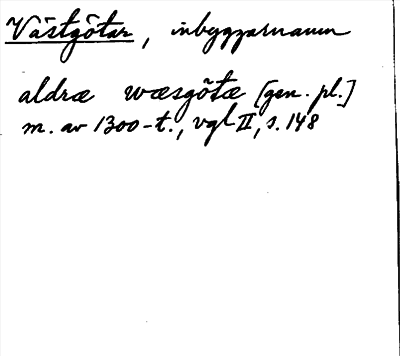 Västgötar, inbyggarnamn
aldræ wæsgötæ [gen. pl.]
m. av 1300-t., vgl II, s. 148